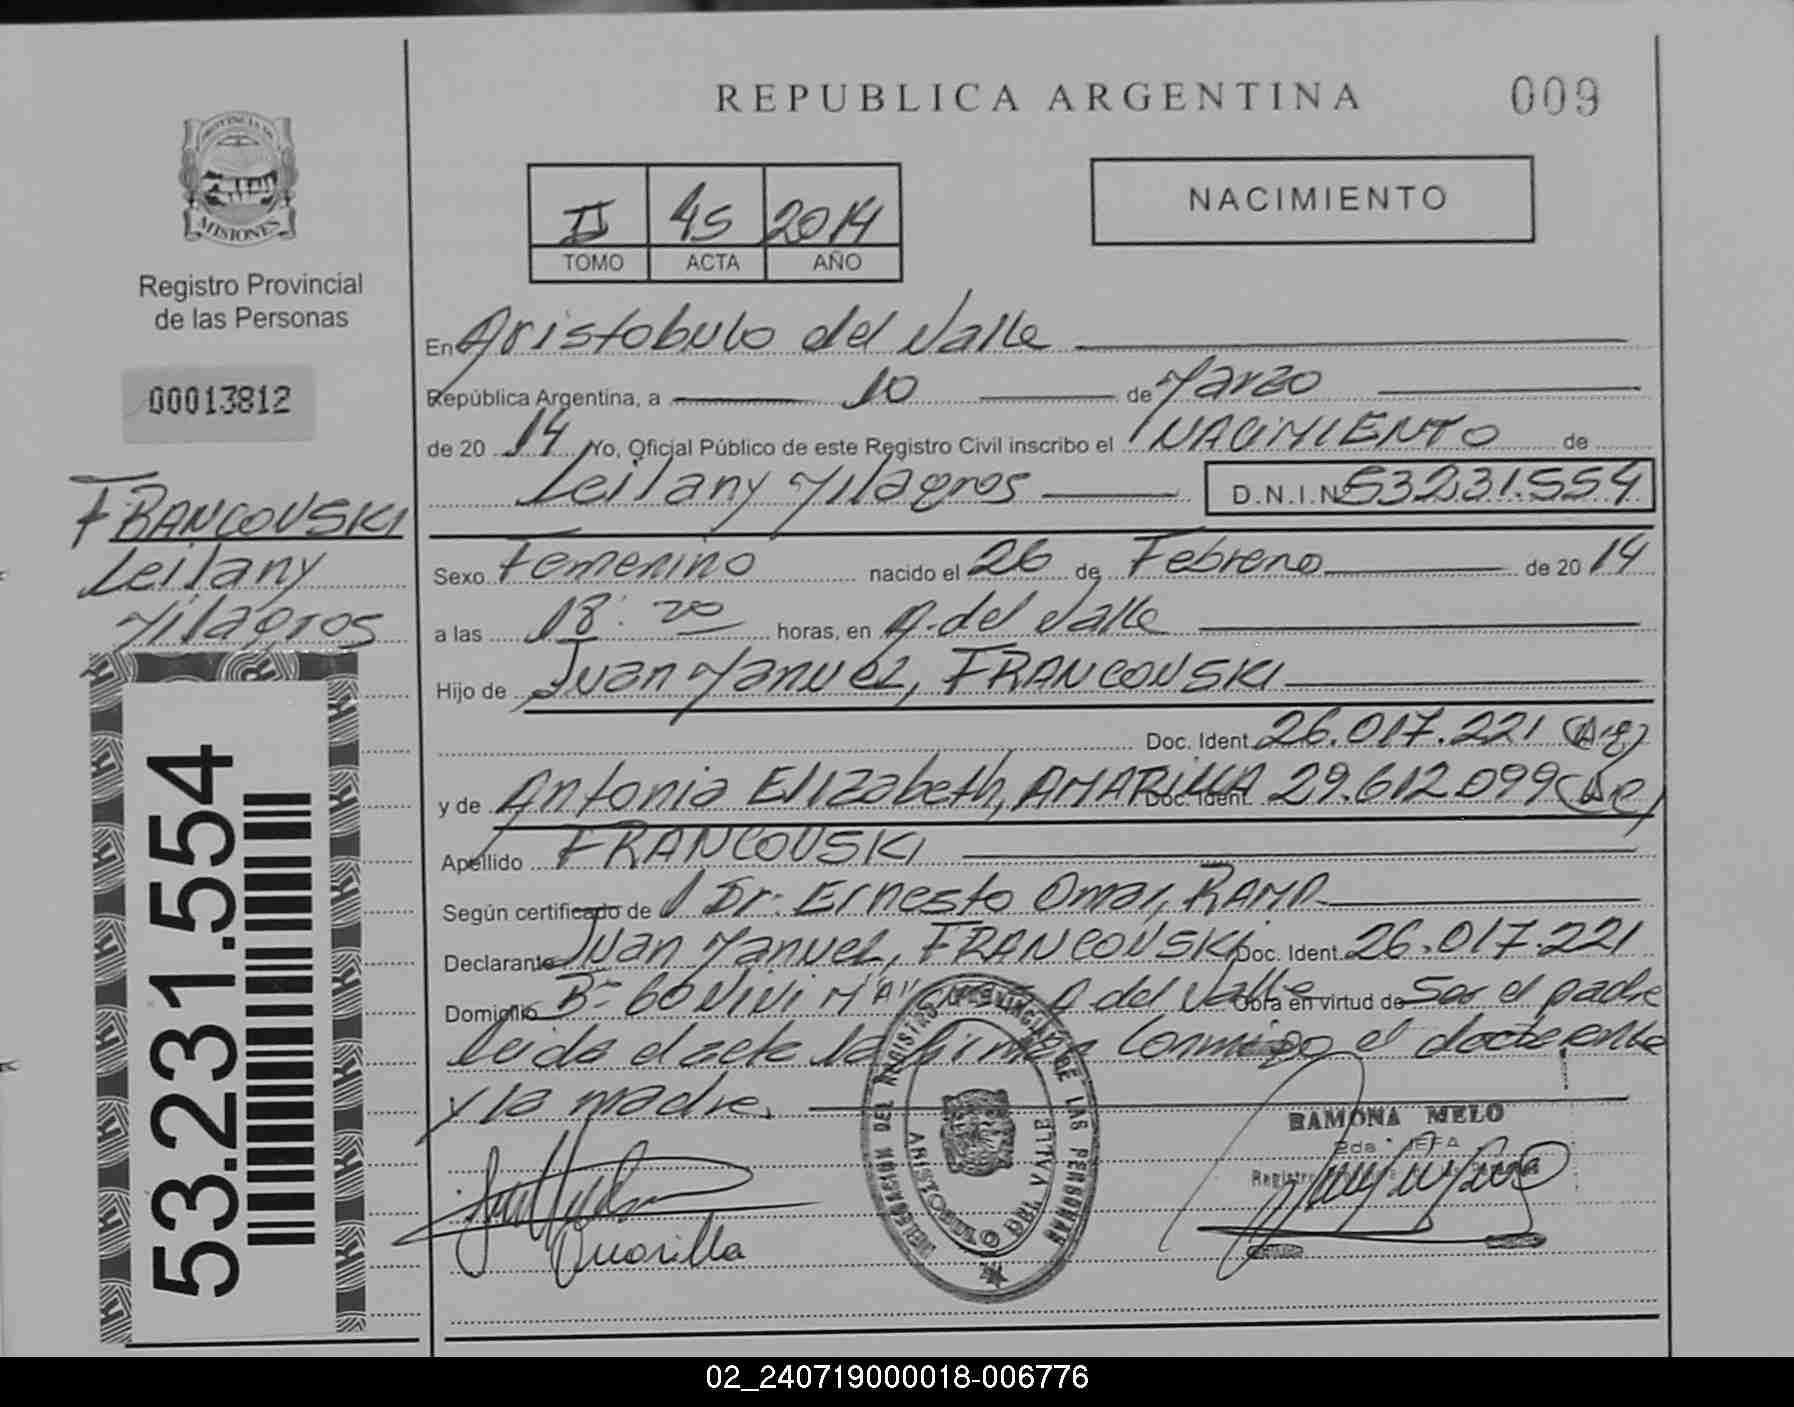 REPUBLICA ARGENTINA
009
PROVINCIA DE
MISIONES
Registro Provincial
de las Personas
00013812
FRANCOVSKI
Leilany
Milagros
53.231.554
II 45 2014
TOMO ACTA AÑO
NACIMIENTO
En Aristobulo del Valle
República Argentina, a 10 de Marzo
de 20 14 Yo, Oficial Público de este Registro Civil inscribo el NACIMIENTO de
Leilany Milagros D.N.I.Nº 53231.554
Sexo Femenino nacido el 26 de Febrero de 20 14
a las 18:20 horas, en A. del Valle
Hijo de Juan Manuel, FRANCOVSKI
Doc. Ident. 26.017.221 (Arg)
y de Antonia Elizabeth, AMARILLA Doc. Ident. 29.612.099
Apellido FRANCOVSKI
Según certificado de Dr. Ernesto Omar, RAMA
Declarante Juan Manuel, FRANCOVSKI Doc. Ident. 26.017.221
Domicilio Bº BONINI A del Valle Obra en virtud de Ser el padre
leida el acta la firman conmigo el declarante
y la madre.
DELEGACION DEL REGISTRO PROVINCIAL DE LAS PERSONAS
ARISTOBULO DEL VALLE
RAMONA MELO
2da JEFA
Amarilla
02_240719000018-006776